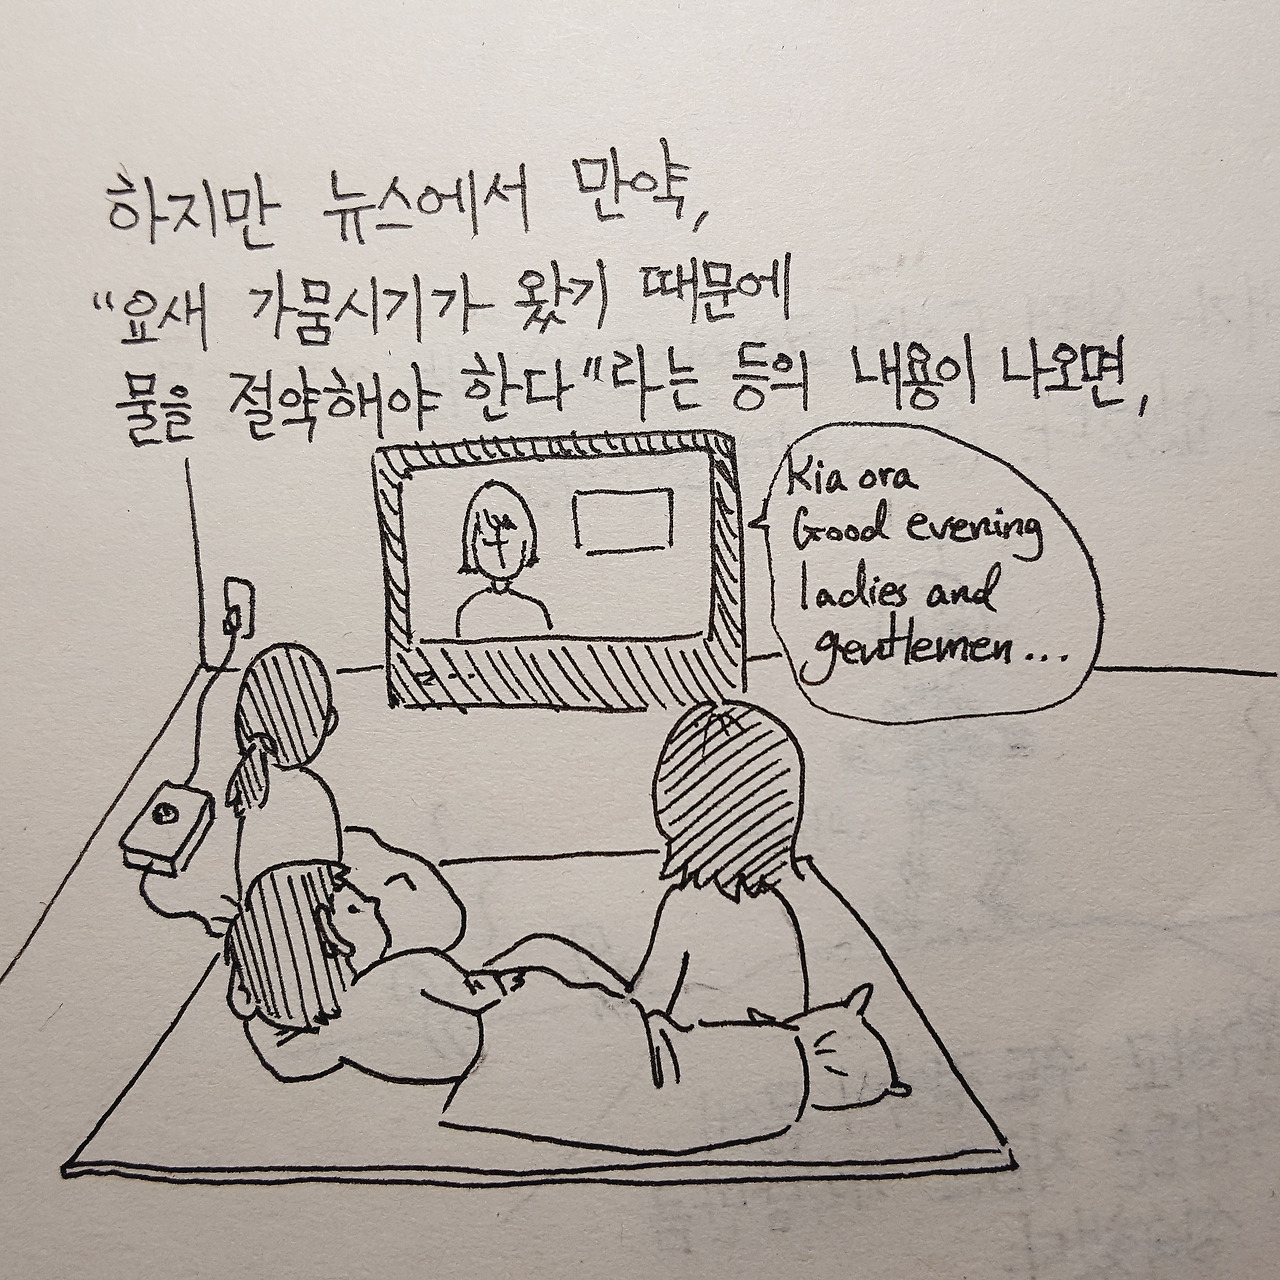 하지만 뉴스에서 만약,
“요새 가뭄시기가 왔기 때문에
물을 절약해야 한다”라는 등의 내용이 나오면,
Kia ora
Good evening
ladies and
gentlemen...